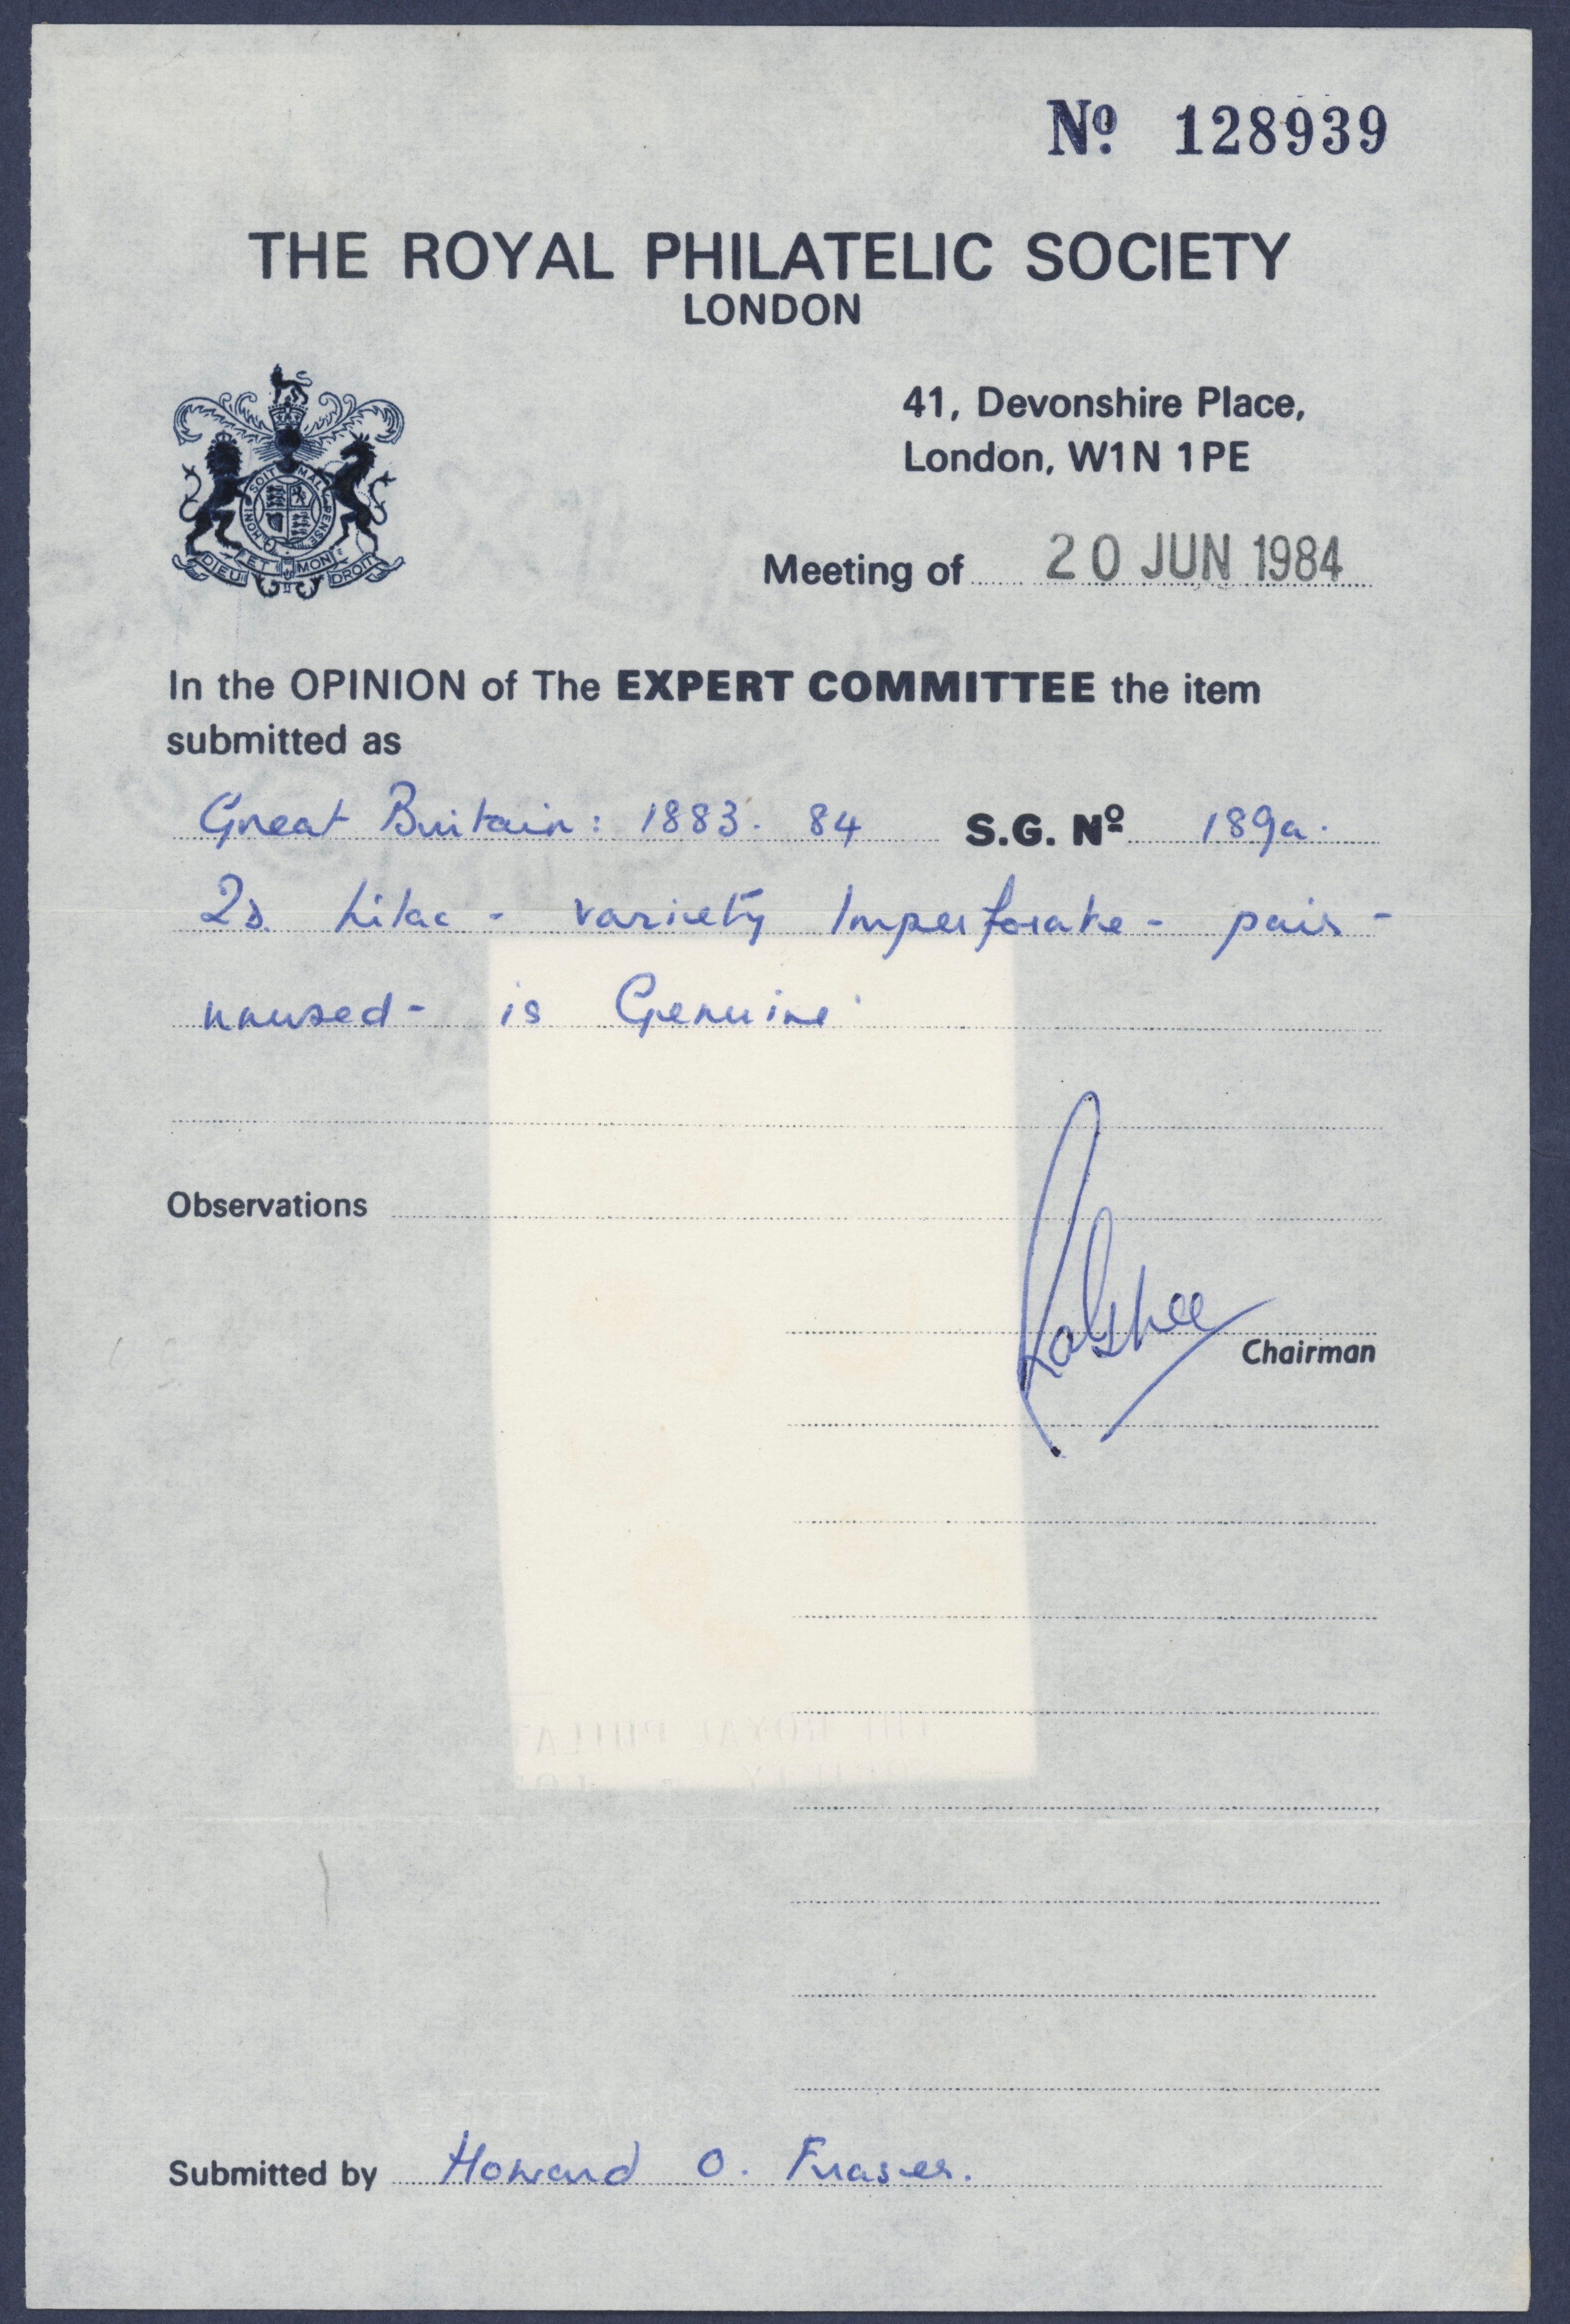 Nº 128939
THE ROYAL PHILATELIC SOCIETY
LONDON
41, Devonshire Place,
London, W1N 1PE
HONI SOIT MAL PENSE
DIEU ET MON DROIT
Meeting of 20 JUN 1984
In the OPINION of The EXPERT COMMITTEE the item
submitted as
Great Britain: 1883. 84 S.G. Nº 189a.
2d. Lilac - variety Imperforate - pair -
unused - is Genuine
Observations
Chairman
Submitted by Howard O. Fraser.